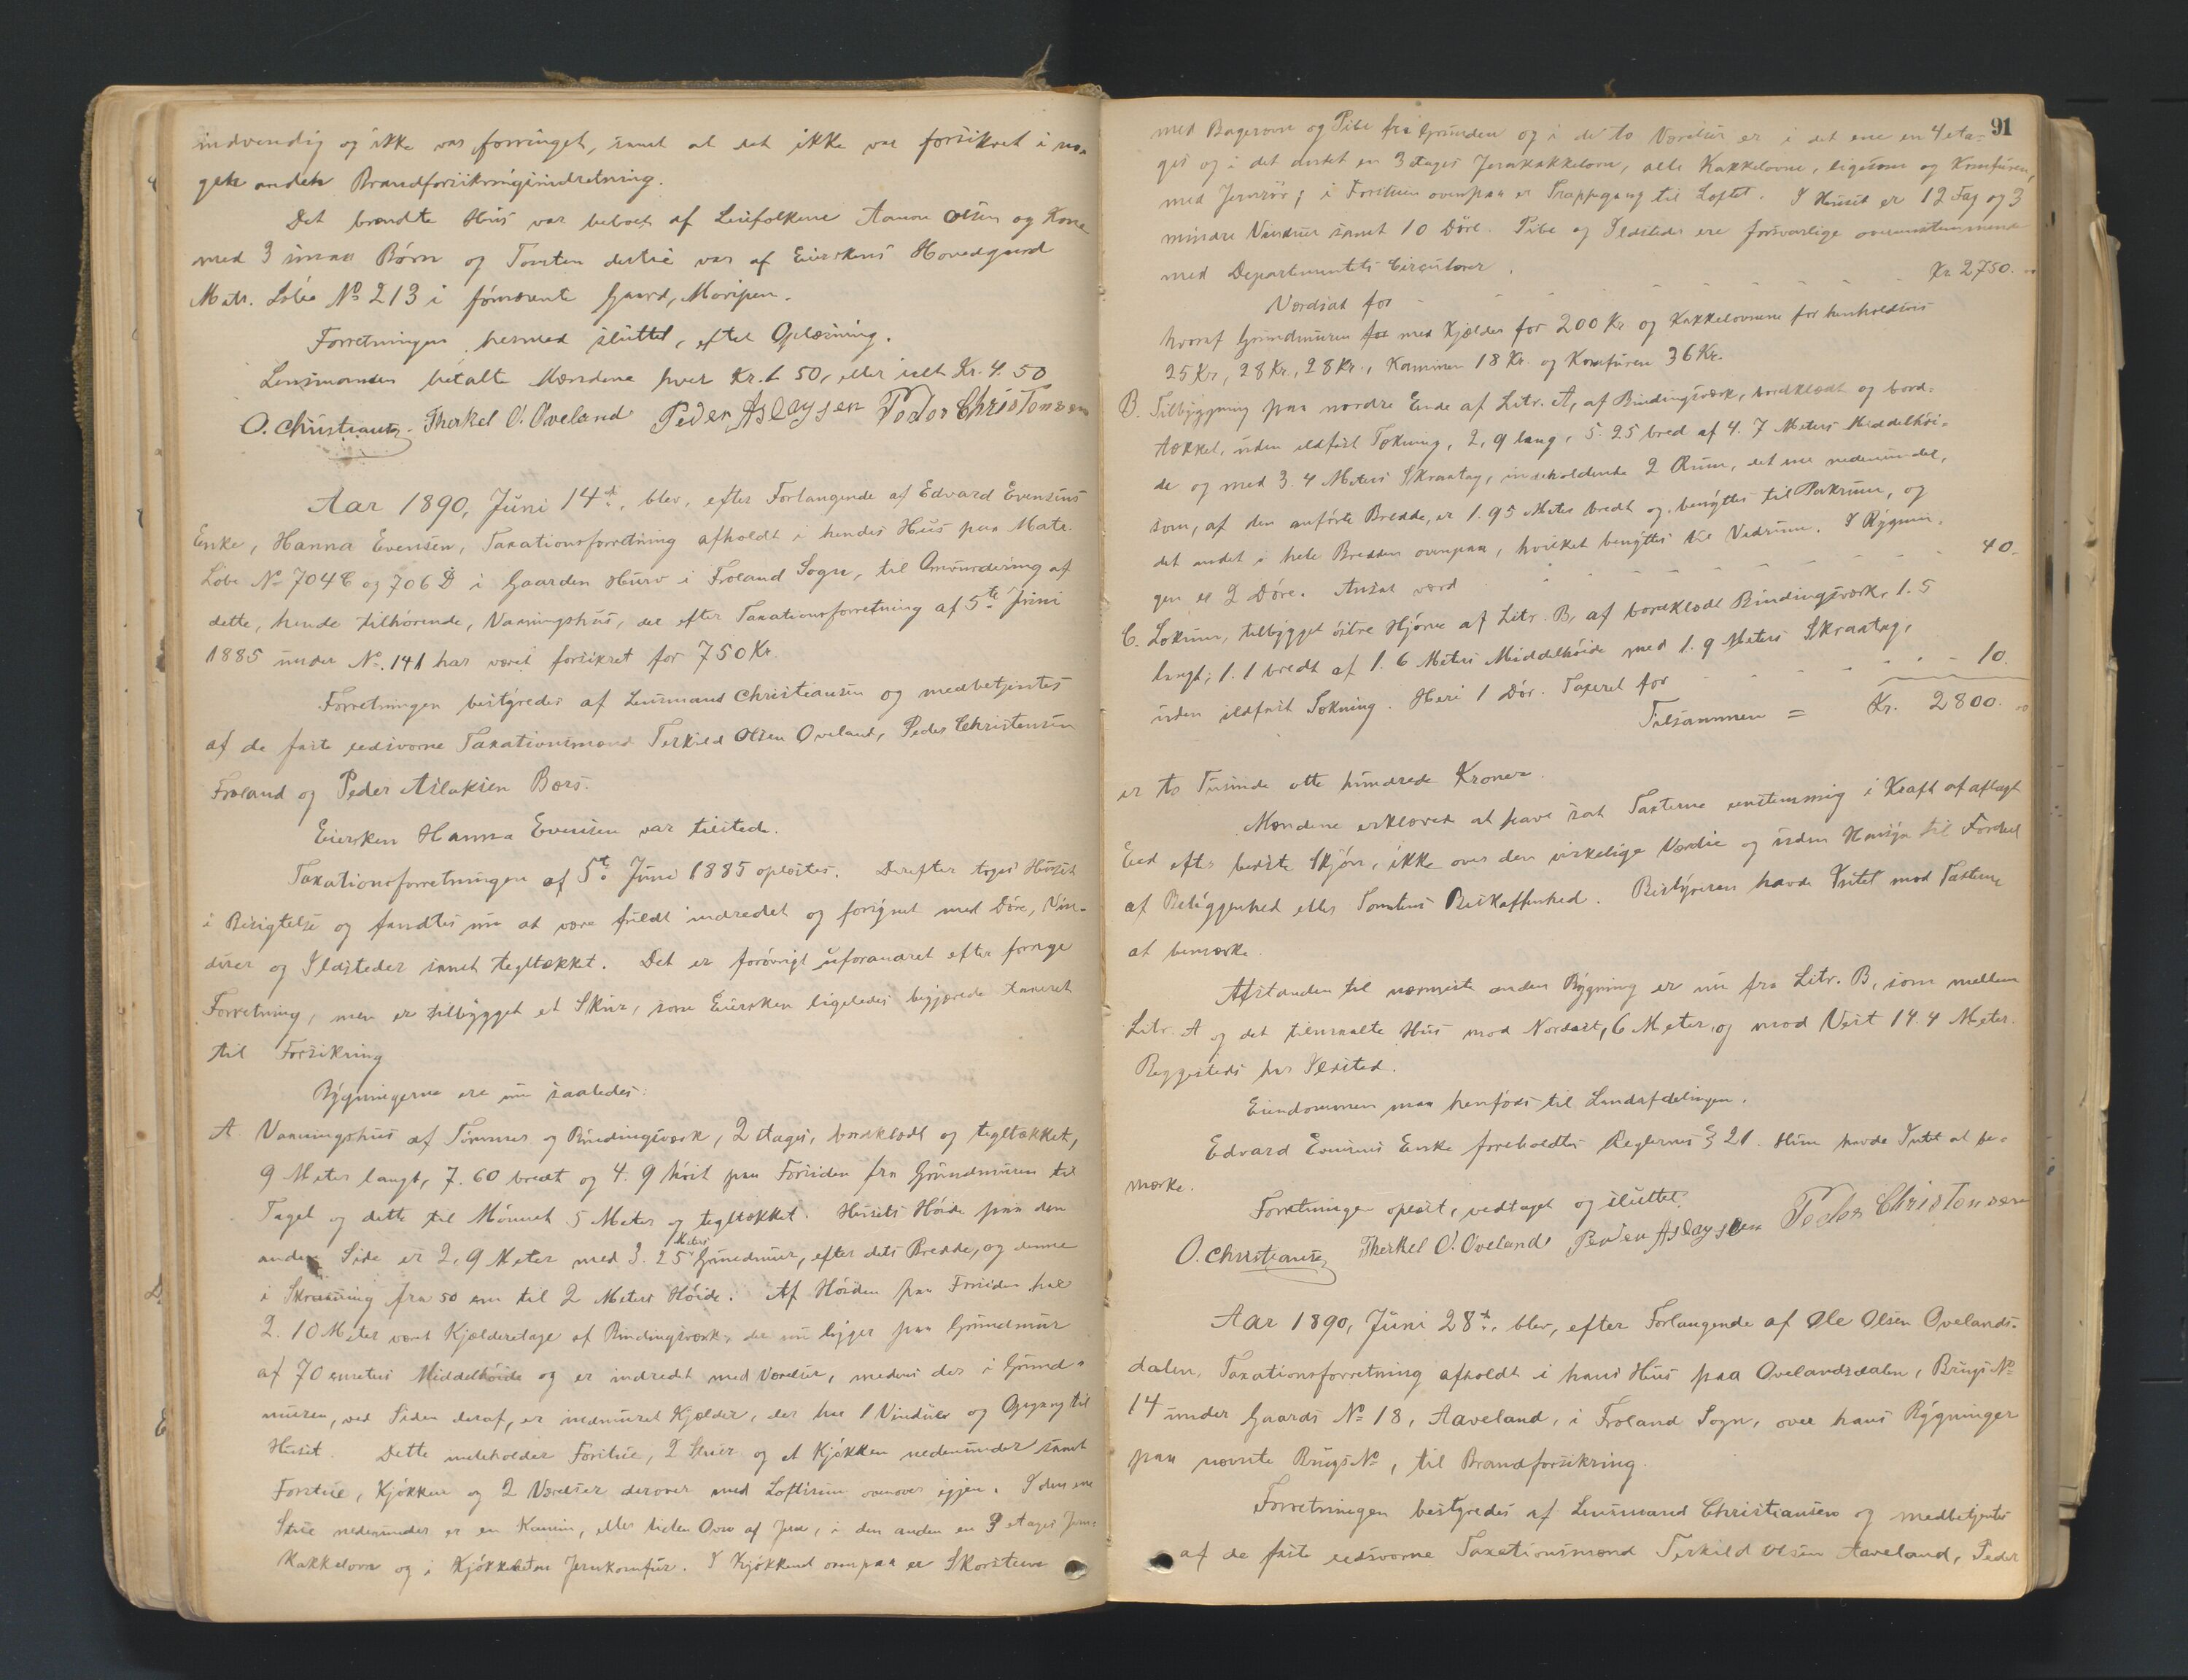 indvendig og ikke var forringet, samt at det ikke var forsikret i no-
gen anden Brandforsikringsindretning.
Det brændte Hus var beboet af Leiefolkene Aamon Olsen og Kone
med 3 smaa Børn og Tomten dertil var af Eierskens Hovedgaard
Matr. Løbe No 213 i førnævnte Gaard, Moripen.
Forretningen hermed sluttet, efter Oplæsning.
Lensmanden betalte Mændene hver Kr. 1.50, eller ialt Kr. 4.50
O. Christiansen Therkel O. Øveland Peder Aslaysen Peder Christensen
Aar 1890, Juni 14de, blev, efter Forlangende af Edvard Evensens
Enke, Hanna Evensen, Taxationsforretning afholdt i hendes Hus paa Matr.
Løbe No 704C og 706D i Gaarden Hurv i Froland Sogn, til Omvurdering af
dette, hende tilhørende, Vaaningshus, der efter Taxationsforretning af 5te Juni
1885 under No. 141 har været forsikret for 750 Kr.
Forretningen bestyredes af Lensmand Christiansen og medbetjentes
af de faste eedsvorne Taxationsmænd Terkild Olsen Øveland, Peder Christensen
Froland og Peder Aslaksen Bærs.
Eiersken Hanna Evensen var tilstede.
Taxationsforretningen af 5te Juni 1885 oplæstes. Derefter toges Huset
i Besigtelse og fandtes nu at være fuldt indredet og forsynet med Døre, Vin-
duer og Ildsteder samt tegltækket. Det er forøvrigt uforandret efter forrige
Forretning, men er tilbygget et Skur, som Eiersken ligeledes begjærede taxeret
til Forsikring
Bygningerne ere nu saaledes:
A. Vaaningshus af Tømmer og Bindingsværk, 2 Etages, bordklædt og tegltækket,
9 Meter langt, 7.60 bredt og 4.9 høit paa Forsiden fra Grundmuren til
Taget og dette til Mønnet 5 Meter og tegltækket. Husets Høide paa den
anden Side er 2,9 Meter med 3.25 Meters Grundmur, efter dets Bredde, og denne
i Skraaning fra 50 cm til 2 Meters Høide. Af Høiden paa Forsiden har
2.10 Meter været Kjælderetage af Bindingsværk, der nu ligger paa Grundmur
af 70 cmeters Middelhøide og er indredet med Værelser, medens der i Grund-
muren, ved Siden deraf, er indmuret Kjælder, der har 1 Vindue og Opgang til
Huset. Dette indeholder Forstue, 2 Stuer og et Kjøkken nedenunder samt
Forstue, Kjøkken og 2 Værelser derover med Loftsrum ovenover igjen. I den ene
Stue nedenunder er en Kamin, eller liden Ovn af Jern, i den anden en 3 Etages Jern-
Kakkelovn og i Kjøkkenet en Jernkomfur. I Kjøkkenet ovenpaa er Skorsteen
91
med Bagerovn og Pibe fra Grunden og i de to Værelser er i det ene en 4 eta-
ges og i det andet en 3 etages Jernkakkelovn, alle Kakkelovne, ligesom og Komfuren,
med Jernrør; i Forstuen ovenpaa er Trappegang til Loftet. I Huset er 12 Fag og 3
mindre Vinduer samt 10 Døre. Pibe og Ildsteder ere forsvarlige overensstemmende
med Departementets Circulærer.
Værdsat for Kr. 2750.
hvoraf Grundmuren for med Kjælder for 200 Kr og Kakkelovnene for henholdsvis
25 Kr, 28 Kr., 28 Kr., Kaminen 18 Kr. og Komfuren 36 Kr.
B. Tilbygning paa nordre Ende af Litr. A, af Bindingsværk, bordklædt og bord-
tækket, uden ildfast Tækning, 2,9 lang, 5.25 bred af 4.7 Meters Middelhøi-
de og med 3.4 Meters Skraatag, indeholdende 2 Rum, det ene nedenunder,
som, af den anførte Bredde, er 1.95 Meter bredt og benyttes til Pakrum, og
det andet i hele Bredden ovenpaa, hvilket benyttes til Vedrum. I Bygnin-
gen er 2 Døre. Ansat værd 40.
C. Lokum, tilbygget østre Hjørne af Litr. B, af bordklædt Bindingsværk, 1.5
langt, 1.1 bredt af 1.6 Meters Middelhøide med 1.9 Meters Skraatag,
uden ildfast Tækning. Heri 1 Dør. Taxeret for 10.
Tilsammen = Kr. 2800.
er to Tusinde otte hundrede Kroner.
Mændene erklærede at have sat Taxterne eenstemmig i Kraft af aflagt
Eed efter bedste Skjøn, ikke over den virkelige Værdie og uden Hensyn til Fordeel
af Beliggenhed eller Tomtens Beskaffenhed. Bestyreren havde Intet mod Taxterne
at bemærke.
Afstanden til nærmeste anden Bygning er nu fra Litr. B, som mellem
Litr. A og det tilmaalte Hus mod Nordøst, 6 Meter, og mod Vest 14.4 Meter.
Beggesteds har Ildsted.
Eiendommen maa henføres til Landafdelingen.
Edvard Evensens Enke foreholdtes Reglernes § 21. Hun havde Intet at be-
mærke.
Forretningen oplæst, vedtaget og sluttet.
O. Christiansen Therkel O. Øveland Peder Aslaysen Peder Christensen
Aar 1890, Juni 28de, blev, efter Forlangende af Ole Olsen Øvelands-
dalen, Taxationsforretning afholdt i hans Hus paa Øvelandsdalen, Brugs No
14 under Gaards No 18, Aaveland, i Froland Sogn, over hans Bygninger
paa nævnte Brugs No, til Brandforsikring.
Forretningen bestyredes af Lensmand Christiansen og medbetjentes
af de faste eedsvorne Taxationsmænd Terkild Olsen Aaveland, Peder